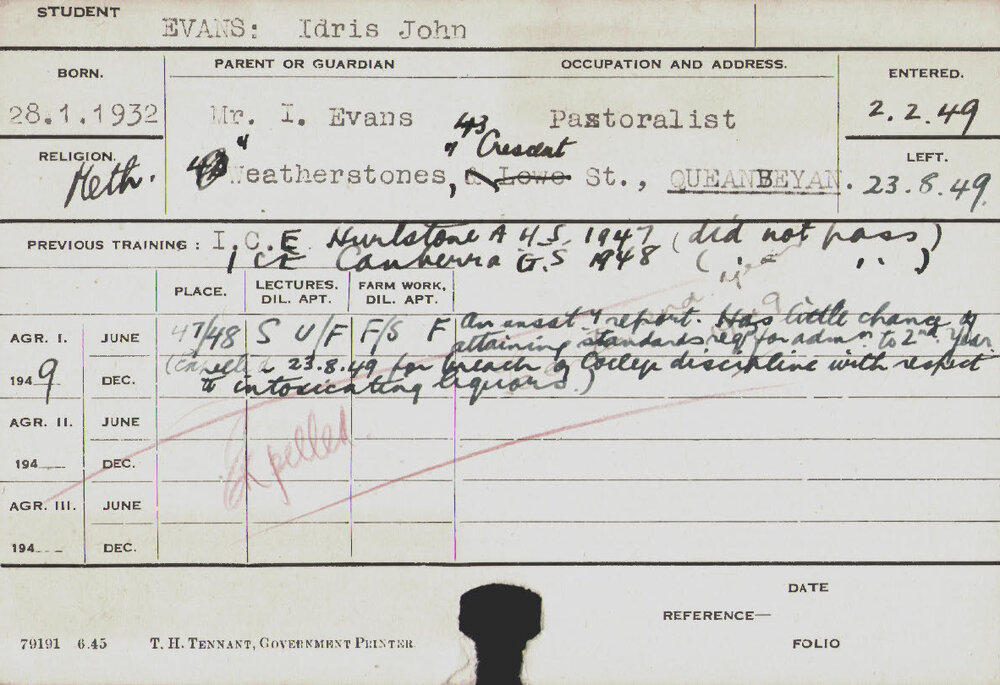 STUDENT
EVANS: Idris John
BORN.
PARENT OR GUARDIAN
OCCUPATION AND ADDRESS.
ENTERED.
28.1.1932
Mr. I. Evans
Pastoralist
2.2.49
RELIGION.
Meth.
43 Crescent
LEFT.
"Weatherstones, Lowe St., QUEANBEYAN.
23.8.49.
PREVIOUS TRAINING: I.C.E. Hurlstone A.H.S. 1947 (did not pass)
I C E Canberra G.S 1948 ( " " )
PLACE.
LECTURES. DIL. APT.
FARM WORK. DIL. APT.
AGR. I. JUNE 47/48 S U/F F/S F An unsat. report. Has little chance of
attaining standards req for admn. to 2nd Year.
1949 DEC. (Expelled 23.8.49 for breach of College discipline with respect
to intoxicating liquors.)
AGR. II. JUNE
Expelled.
194 DEC.
AGR. III. JUNE
194 DEC.
DATE
REFERENCE—
FOLIO
79191 6.45 T. H. TENNANT, GOVERNMENT PRINTER